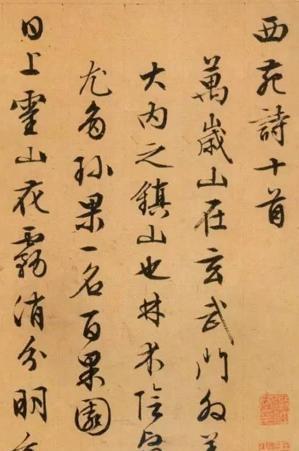 西苑詩十首
萬歲山在玄武門外
大內之鎮山也林木陰
尤多珎果一名百果園
日上靈山花霧消分明